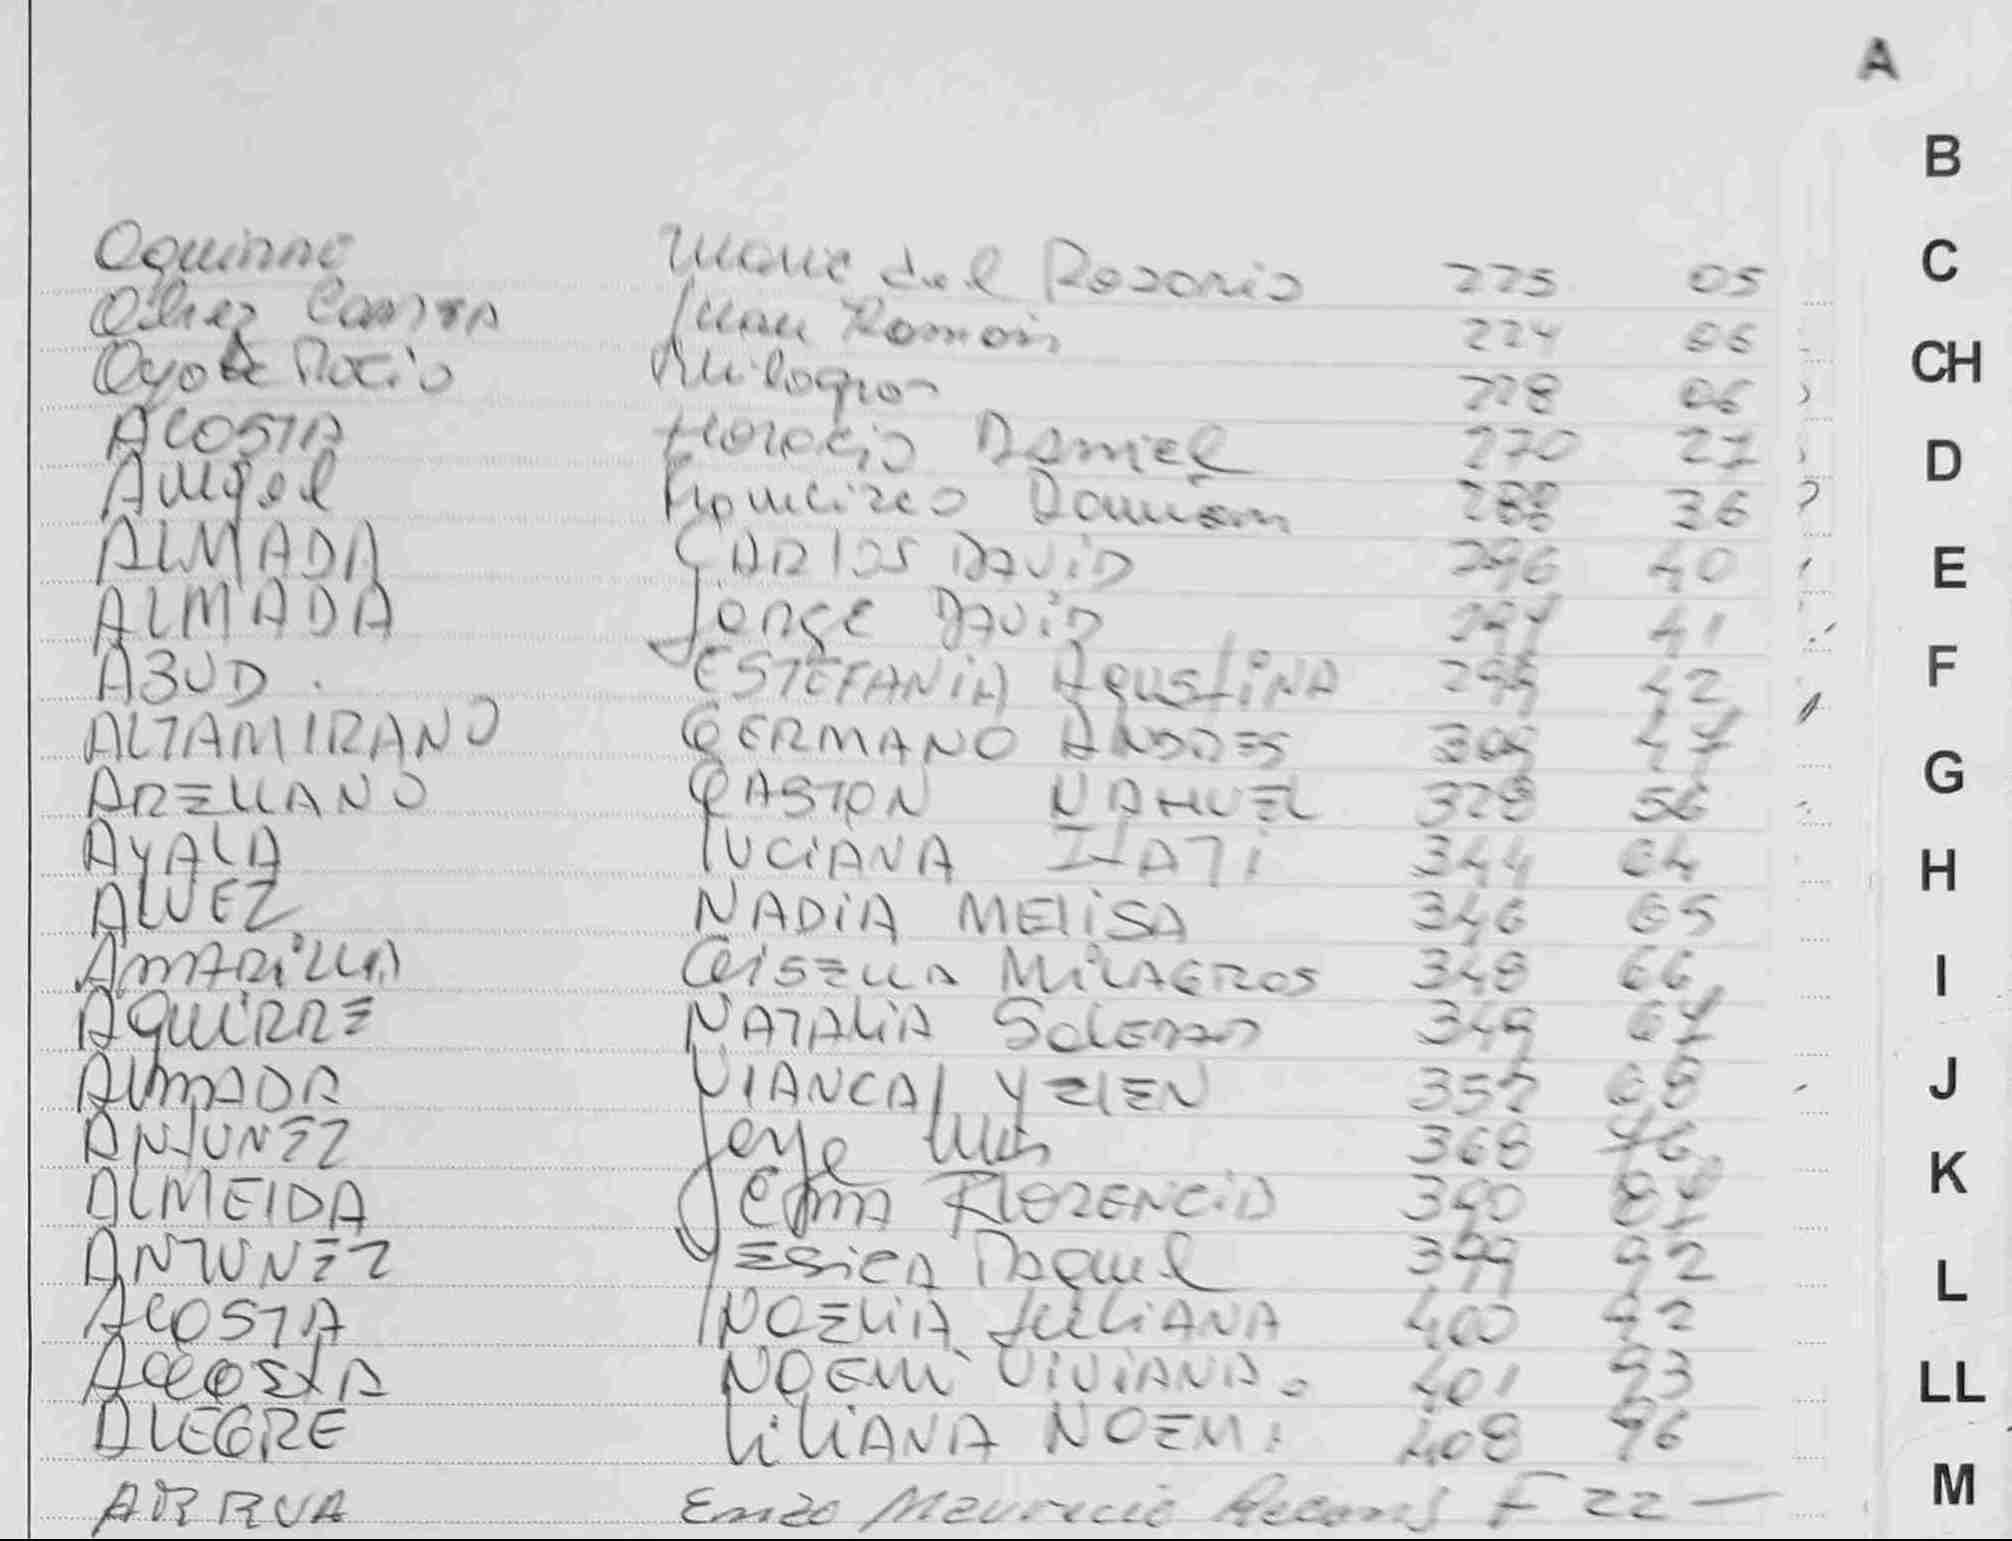 A
B
C
CH
D
E
F
G
H
I
J
K
L
LL
M
Aguirre Marie del Rosario 225 05
Juan Roman 224 06
Rocio Milagros 228 06
ACOSTA Horacio Daniel 270 27
Angel Francisco Damian 288 36
ALMADA CARLOS DAVID 296 40
ALMADA Jorge DAVID 297 41
ABUD. ESTEFANIA AgustiNA 299 42
ALTAMIRANO GERMANO ANDRES 309 47
ARELLANO GASTON NAHUEL 328 56
AYALA LUCIANA ITATI 344 64
ALVEZ NADIA MELISA 346 65
AMARILLA GISELLA MILAGROS 348 66
AguiRRE NATALIA SOLEDAD 349 67
ALMADA VIANCA 357 68
ANTUNEZ Jorge Luis 368 76
ALMEIDA GEMA FLORENCIA 390 87
ANTUNEZ YESICA Raquel 399 92
ACOSTA NOELIA JULIANA 400 92
ACOSTA NOEMI VIVIANA. 401 93
ALEGRE LILIANA NOEMI 408 96
ARRUA Enzo Mauricio F 22 —